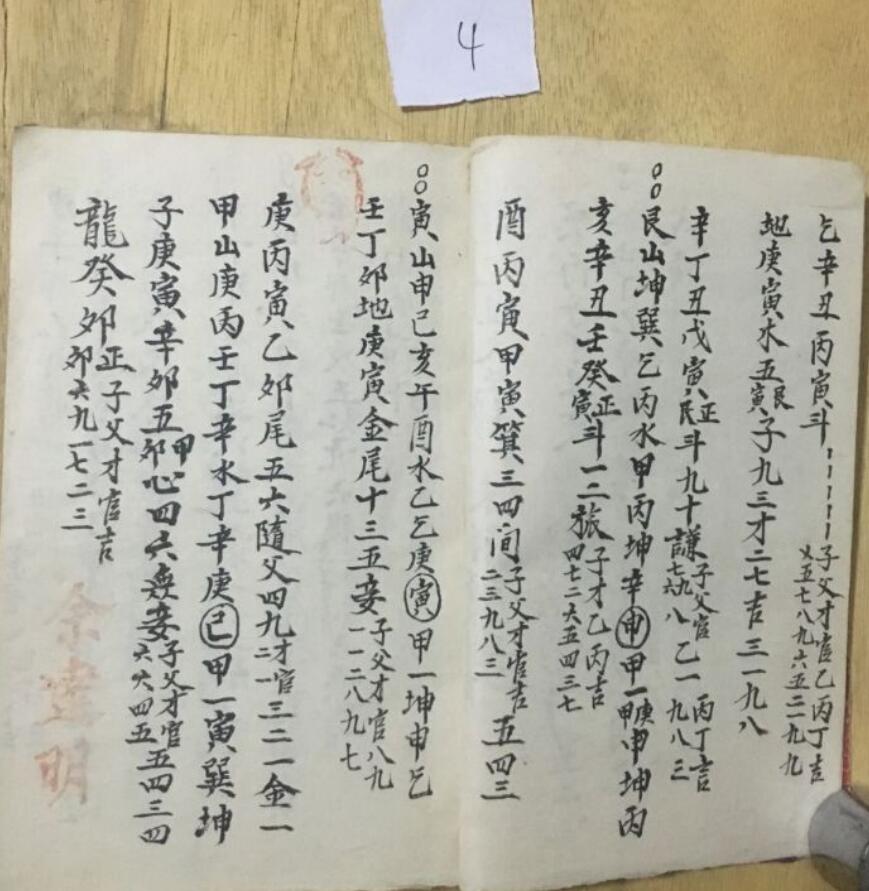 4
乞辛丑丙寅斗子父才官乙丙丁吉
乂五七八九六五二一九九
地庚寅水五艮寅子九三才二七吉三一九八
辛丁丑戊寅正艮斗九十謙子父官乙一丙丁吉
七九六八九八三
艮山坤巽乞丙水甲丙坤辛申甲一庚甲申坤丙
亥辛丑壬癸正寅斗一二旅子才乙丙吉
四七二六五四三七
酉丙寅甲寅箕三四间子父才官吉五四三
二三九八三
寅山申己亥午酉水乙乞庚寅甲一坤申乞
壬丁卯地庚寅金尾十三五妾子父才官八九
一一二八九七
庚丙寅乙卯尾五六隨父四九才官三二一金一
二一
甲山庚丙壬丁辛水丁辛庚己甲一寅巽坤
子庚寅辛卯五甲卯心四六妾子父才官五四三四
六六四五
龍癸卯正子父才官吉
卯六九一七二三
余達明